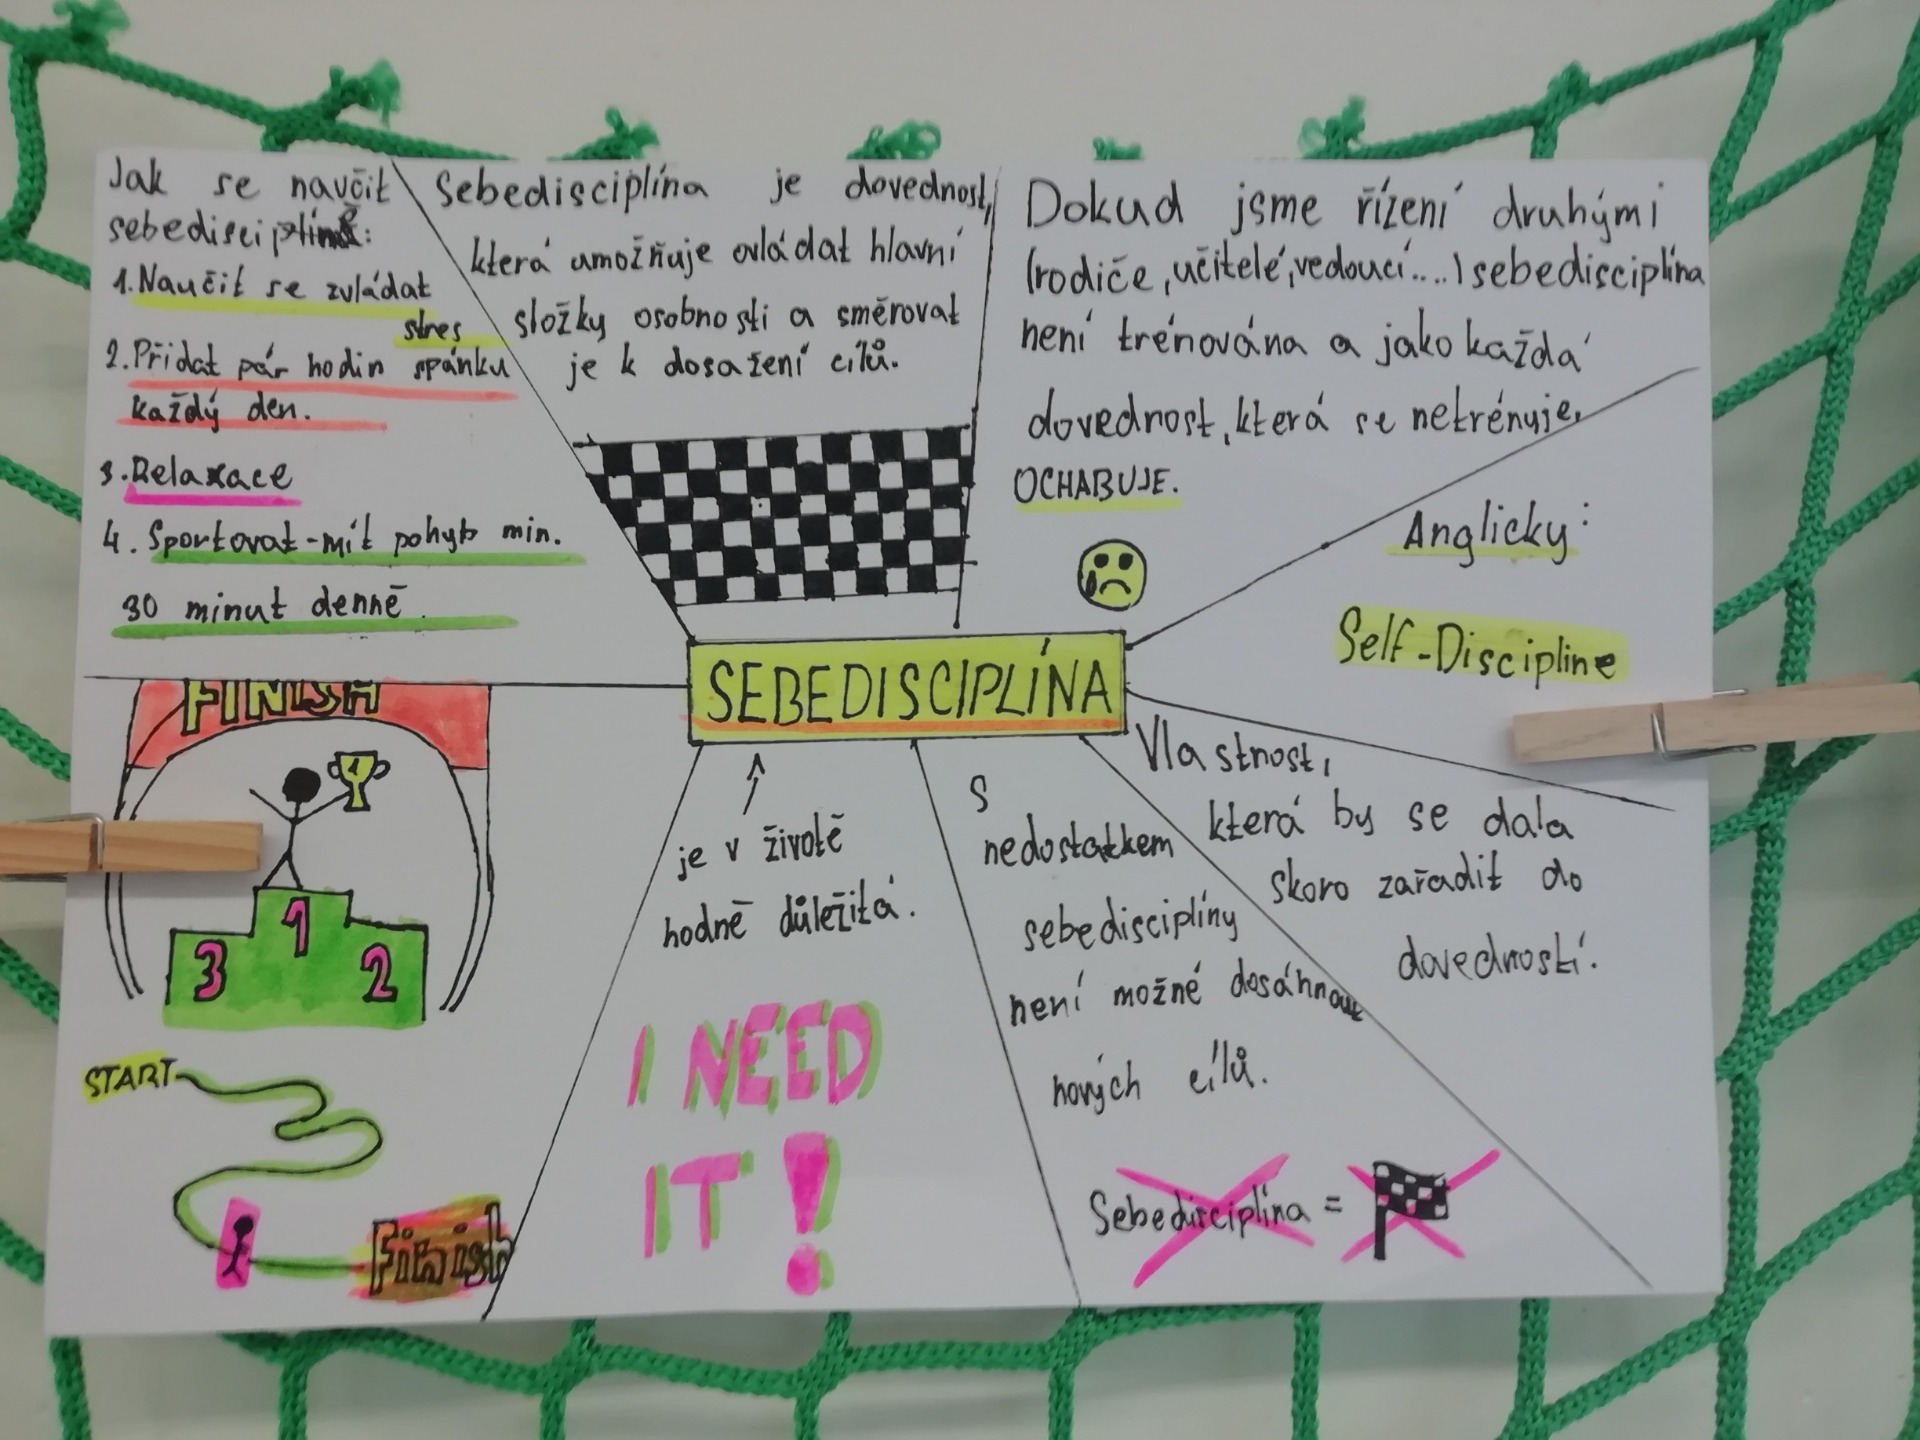 Jak se naučit
sebedisciplíně:
1. Naučit se zvládat
stres
2. Přidat pár hodin spánku
každý den.
3. Relaxace
4. Sportovat - mít pohyb min.
30 minut denně
Sebedisciplína je dovednost,
která umožňuje ovládat hlavní
složky osobnosti a směrovat
je k dosažení cílů.
Dokud jsme řízení druhými
(rodiče, učitelé, vedoucí....) sebedisciplína
není trénována a jako každá
dovednost, která se netrénuje,
OCHABUJE.
Anglicky:
Self-Discipline
SEBEDISCIPLÍNA
Vlastnost,
která by se dala
skoro zařadit do
dovedností.
S
nedostatkem
sebedisciplíny
není možné dosáhnout
nových cílů.
Sebedisciplína =
je v životě
hodně důležitá.
I NEED
IT!
FINISH
1
3 2
1
START
Finish